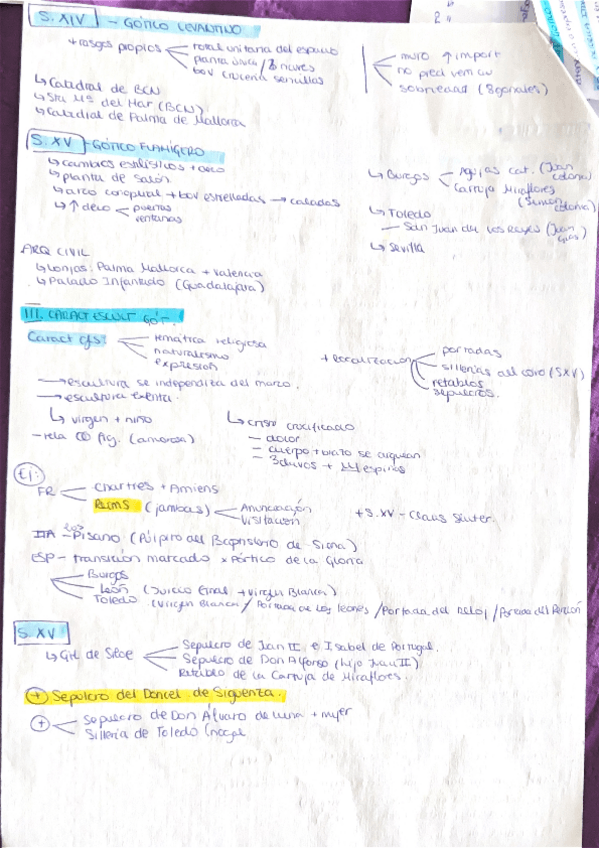 S. XIV - GÓTICO LEVANTINO
+ rasgos propios
total unitaria del espacio
planta única / 3 naves
bov crucería sencillas
muro ↑ import
no pred vem
sobriedad (8gonales)
↳ Catedral de BCN
↳ Sta Mª del Mar (BCN)
↳ Catedral de Palma de Mallorca
S. XV - GÓTICO FLAMÍGERO
↳ cambios estilísticos + deco
↳ planta de salón
↳ arco conopial + bov estrelladas → caladas
↳ ↑ deco
puertas
ventanas
↳ Burgos
Agujas cat. (Juan Colonia)
Cartuja Miraflores (Simón Colonia)
↳ Toledo
— San Juan de los Reyes (Juan Guas)
↳ Sevilla
ARQ CIVIL
↳ Lonjas: Palma Mallorca + Valencia
↳ Palacio Infantado (Guadalajara)
III. CARACT ESCULT GÓT.
Caract gls:
temática religiosa
naturalismo
expresión
+ localización
portadas
sillerías del coro (SXV)
retablos
sepulcros.
→ escultura se independiza del marco.
→ escultura exenta.
↳ virgen + niño
- rela fig. (amorosa)
↳ cristo crucificado
- dolor
- cuerpo + brazo se arquean
- 3 clavos + espinas
Ej:
FR
Chartres + Amiens
REIMS (jambas)
Anunciación
Visitación
+ S. XV - Claus Sluter.
ITA - Pisano (Púlpito del Baptisterio de Siena)
ESP - transición marcado x Pórtico de la Gloria
Burgos
León (Juicio Final + Virgen Blanca)
Toledo (Virgen Blanca / Portada de los leones / Portada del Reloj / Portada del Perdón
S. XV
↳ Gil de Siloe
Sepulcro de Juan II e Isabel de Portugal.
Sepulcro de Don Alfonso (hijo Juan II).
Retablo de la Cartuja de Miraflores.
+ Sepulcro del Doncel de Sigüenza.
+
Sepulcro de Don Álvaro de Luna + mujer
Sillería de Toledo (nogal